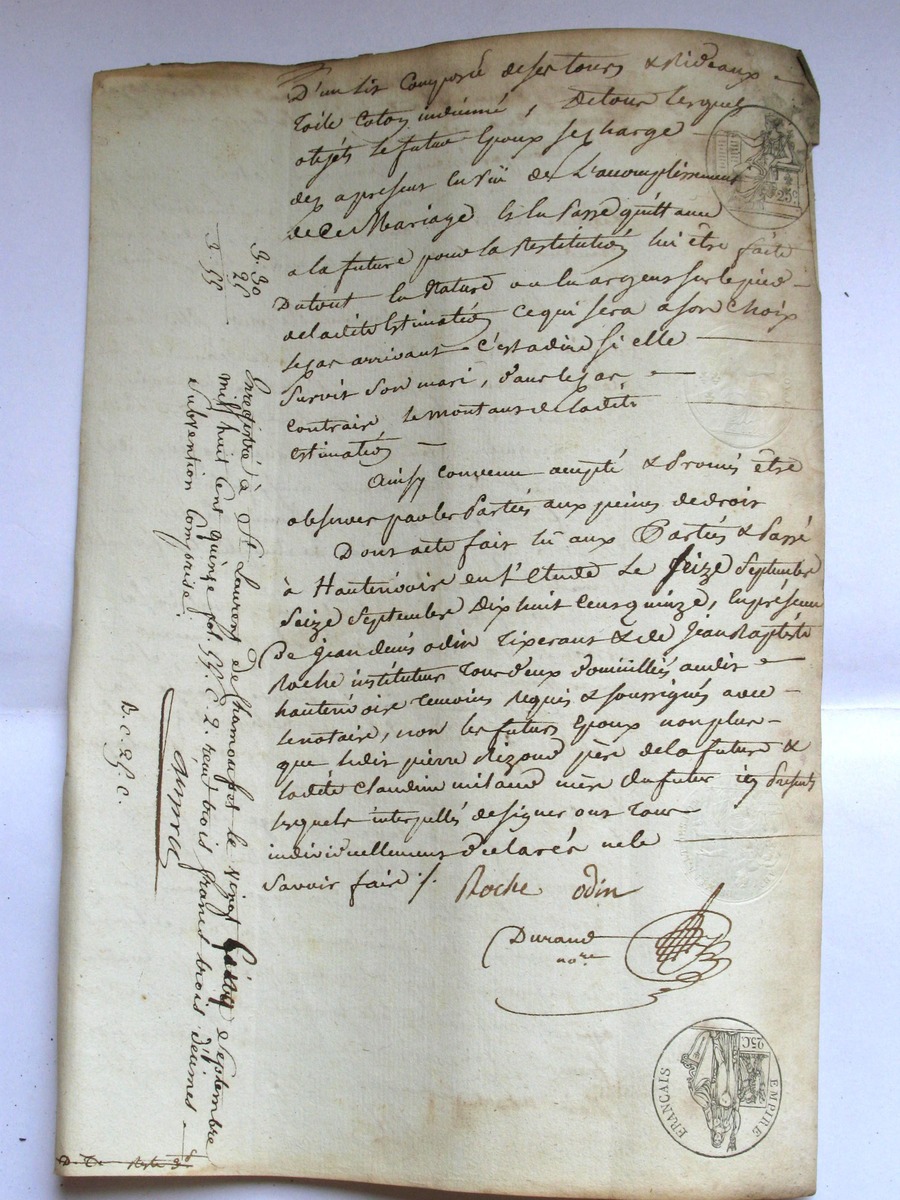 D'un lit Composé de ses tours & Rideaux
toile Coton indienné, De tous lesquels
objets le futur Epoux se charge
dez apresent en vüe de L'acomplissement
de Ce Mariage & en Passe quittance
a la future pour la Restitution lui être faite
Du tout en Nature ou en argent sur le pied
de ladite Estimation Ce qui sera a son Choix
le cas arrivant c'est adire si elle
Survit Son mari, dans le Cas
contraire, le montant de ladite
estimation
Ainsy convenu accepté & Promis être
observer par les Parties aux peines de droit
Dont acte fait lu aux Parties & Passé
à Hauterivoire en l'Etude Le Seize Septembre
Seize Septembre Dix huit Cent quinze, En présence
De Jean denis odin Tixerant & de Jean Baptiste
Roche instituteur Tous deux domiciliés audit
hauterivoire Temoins requis & soussignés avec
le notaire, non les futurs Epoux non plus
que ledit pierre Rizond père de la future &
ladite Claudine miland mère Du futur icy Presents
lesquels interpellés de signer ont Tous
individuellement déclarés ne le
Savoir faire ./. Roche odin
Durand
nore
3. 30
25
3 55
Enregistré à St Laurent de Chamousset le vingt Cinq Septembre
mil huit cent quinze fol. 55. C. 2. reçu trois francs trois décimes
Subvention Comprise.
D. C. 25. C.
25C
EMPIRE FRANÇAIS
25C